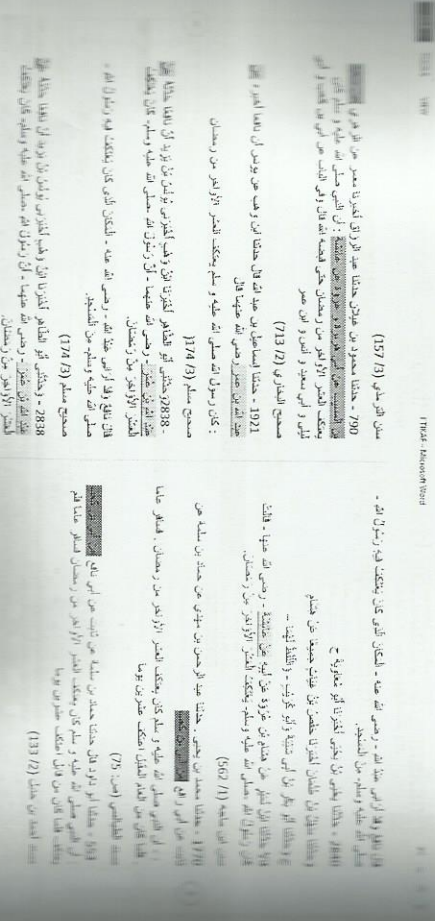 I'TIKAF - Microsoft Word
سنن الترمذي (3/ 157)
790 - حدثنا محمود بن غيلان حدثنا عبد الرزاق أخبرنا معمر عن الزهري عن سعيد
بن المسيب عن أبي هريرة و عروة عن عائشة : أن النبي صلى الله عليه و سلم كان
يعتكف العشر الأواخر من رمضان حتى قبضه الله قال وفي الباب عن أبي بن كعب و أبي
ليلى و أبي سعيد و أنس و ابن عمر
صحيح البخاري (2/ 713)
1921 - حدثنا إسماعيل بن عبد الله قال حدثنا ابن وهب عن يونس أن نافعا أخبره عن
عبد الله بن عمر رضي الله عنهما قال
: كان رسول الله صلى الله عليه و سلم يعتكف العشر الأواخر من رمضان
صحيح مسلم (3/ 174)
2838- وَحَدَّثَنِى أَبُو الطَّاهِرِ أَخْبَرَنَا ابْنُ وَهْبٍ أَخْبَرَنِى يُونُسُ بْنُ يَزِيدَ أَنَّ نَافِعًا حَدَّثَهُ عَنْ
عَبْدِ اللَّهِ بْنِ عُمَرَ - رضى الله عنهما - أَنَّ رَسُولَ اللَّهِ -صلى الله عليه وسلم- كَانَ يَعْتَكِفُ
الْعَشْرَ الأَوَاخِرَ مِنْ رَمَضَانَ.
قَالَ نَافِعٌ وَقَدْ أَرَانِى عَبْدُ اللَّهِ - رضى الله عنه - الْمَكَانَ الَّذِى كَانَ يَعْتَكِفُ فِيهِ رَسُولُ اللَّهِ -
صلى الله عليه وسلم- مِنَ الْمَسْجِدِ.
صحيح مسلم (3/ 174)
2838 - وَحَدَّثَنِى أَبُو الطَّاهِرِ أَخْبَرَنَا ابْنُ وَهْبٍ أَخْبَرَنِى يُونُسُ بْنُ يَزِيدَ أَنَّ نَافِعًا حَدَّثَهُ عَنْ
عَبْدِ اللَّهِ بْنِ عُمَرَ - رضى الله عنهما - أَنَّ رَسُولَ اللَّهِ -صلى الله عليه وسلم- كَانَ يَعْتَكِفُ
الْعَشْرَ الأَوَاخِرَ مِنْ رَمَضَانَ.
قَالَ نَافِعٌ وَقَدْ أَرَانِى عَبْدُ اللَّهِ - رضى الله عنه - الْمَكَانَ الَّذِى كَانَ يَعْتَكِفُ فِيهِ رَسُولُ اللَّهِ -
صلى الله عليه وسلم- مِنَ الْمَسْجِدِ.
حَدَّثَنَا يَحْيَى بْنُ يَحْيَى أَخْبَرَنَا أَبُو مُعَاوِيَةَ ح
وَحَدَّثَنَا سَهْلُ بْنُ عُثْمَانَ أَخْبَرَنَا حَفْصُ بْنُ غِيَاثٍ جَمِيعًا عَنْ هِشَامٍ
ح وَحَدَّثَنَا أَبُو بَكْرِ بْنُ أَبِى شَيْبَةَ وَأَبُو كُرَيْبٍ - وَاللَّفْظُ لَهُمَا -
قَالاَ حَدَّثَنَا ابْنُ نُمَيْرٍ عَنْ هِشَامِ بْنِ عُرْوَةَ عَنْ أَبِيهِ عَنْ عَائِشَةَ - رضى الله عنها - قَالَتْ
كَانَ رَسُولُ اللَّهِ -صلى الله عليه وسلم- يَعْتَكِفُ الْعَشْرَ الأَوَاخِرَ مِنْ رَمَضَانَ.
سنن ابن ماجة (1/ 562)
1770 - حدثنا محمد بن يحيى . حدثنا عبد الرحمن بن مهدي عن حماد بن سلمة عن
ثابت عن أبي رافع عن أبي بن كعب
: أن النبي صلى الله عليه و سلم كان يعتكف العشر الأواخر من رمضان . فسافر عاما
فلما كان من العام المقبل اعتكف عشرين يوما
مسند الطيالسي (ص: 75)
553 - حدثنا أبو داود قال حدثنا حماد بن سلمة عن ثابت عن أبي رافع عن أبي بن كعب
أن النبي صلى الله عليه و سلم كان يعتكف العشر الأواخر من رمضان فسافر عاما فلم
يعتكف فلما كان من قابل اعتكف عشرين يوما
مسند أحمد بن حنبل (2/ 133)